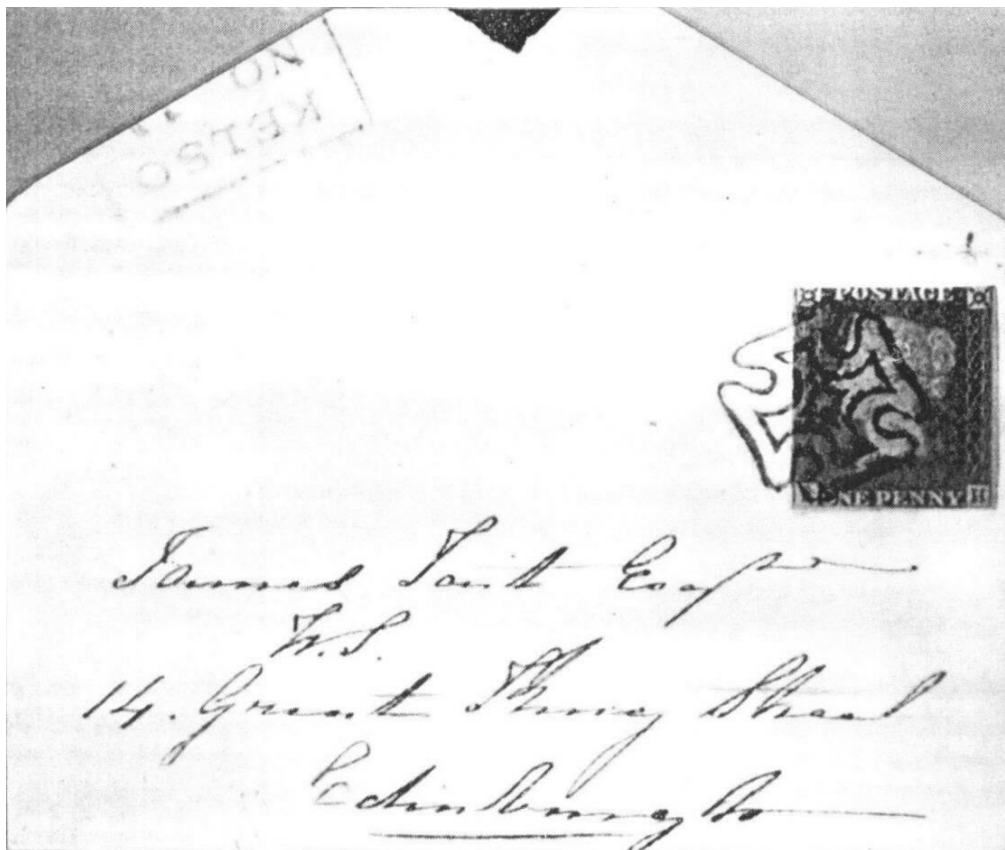 KELSO
NO
POSTAGE
ONE PENNY H
James Tait Esqr
W.S.
14 Great Street
Edinburgh